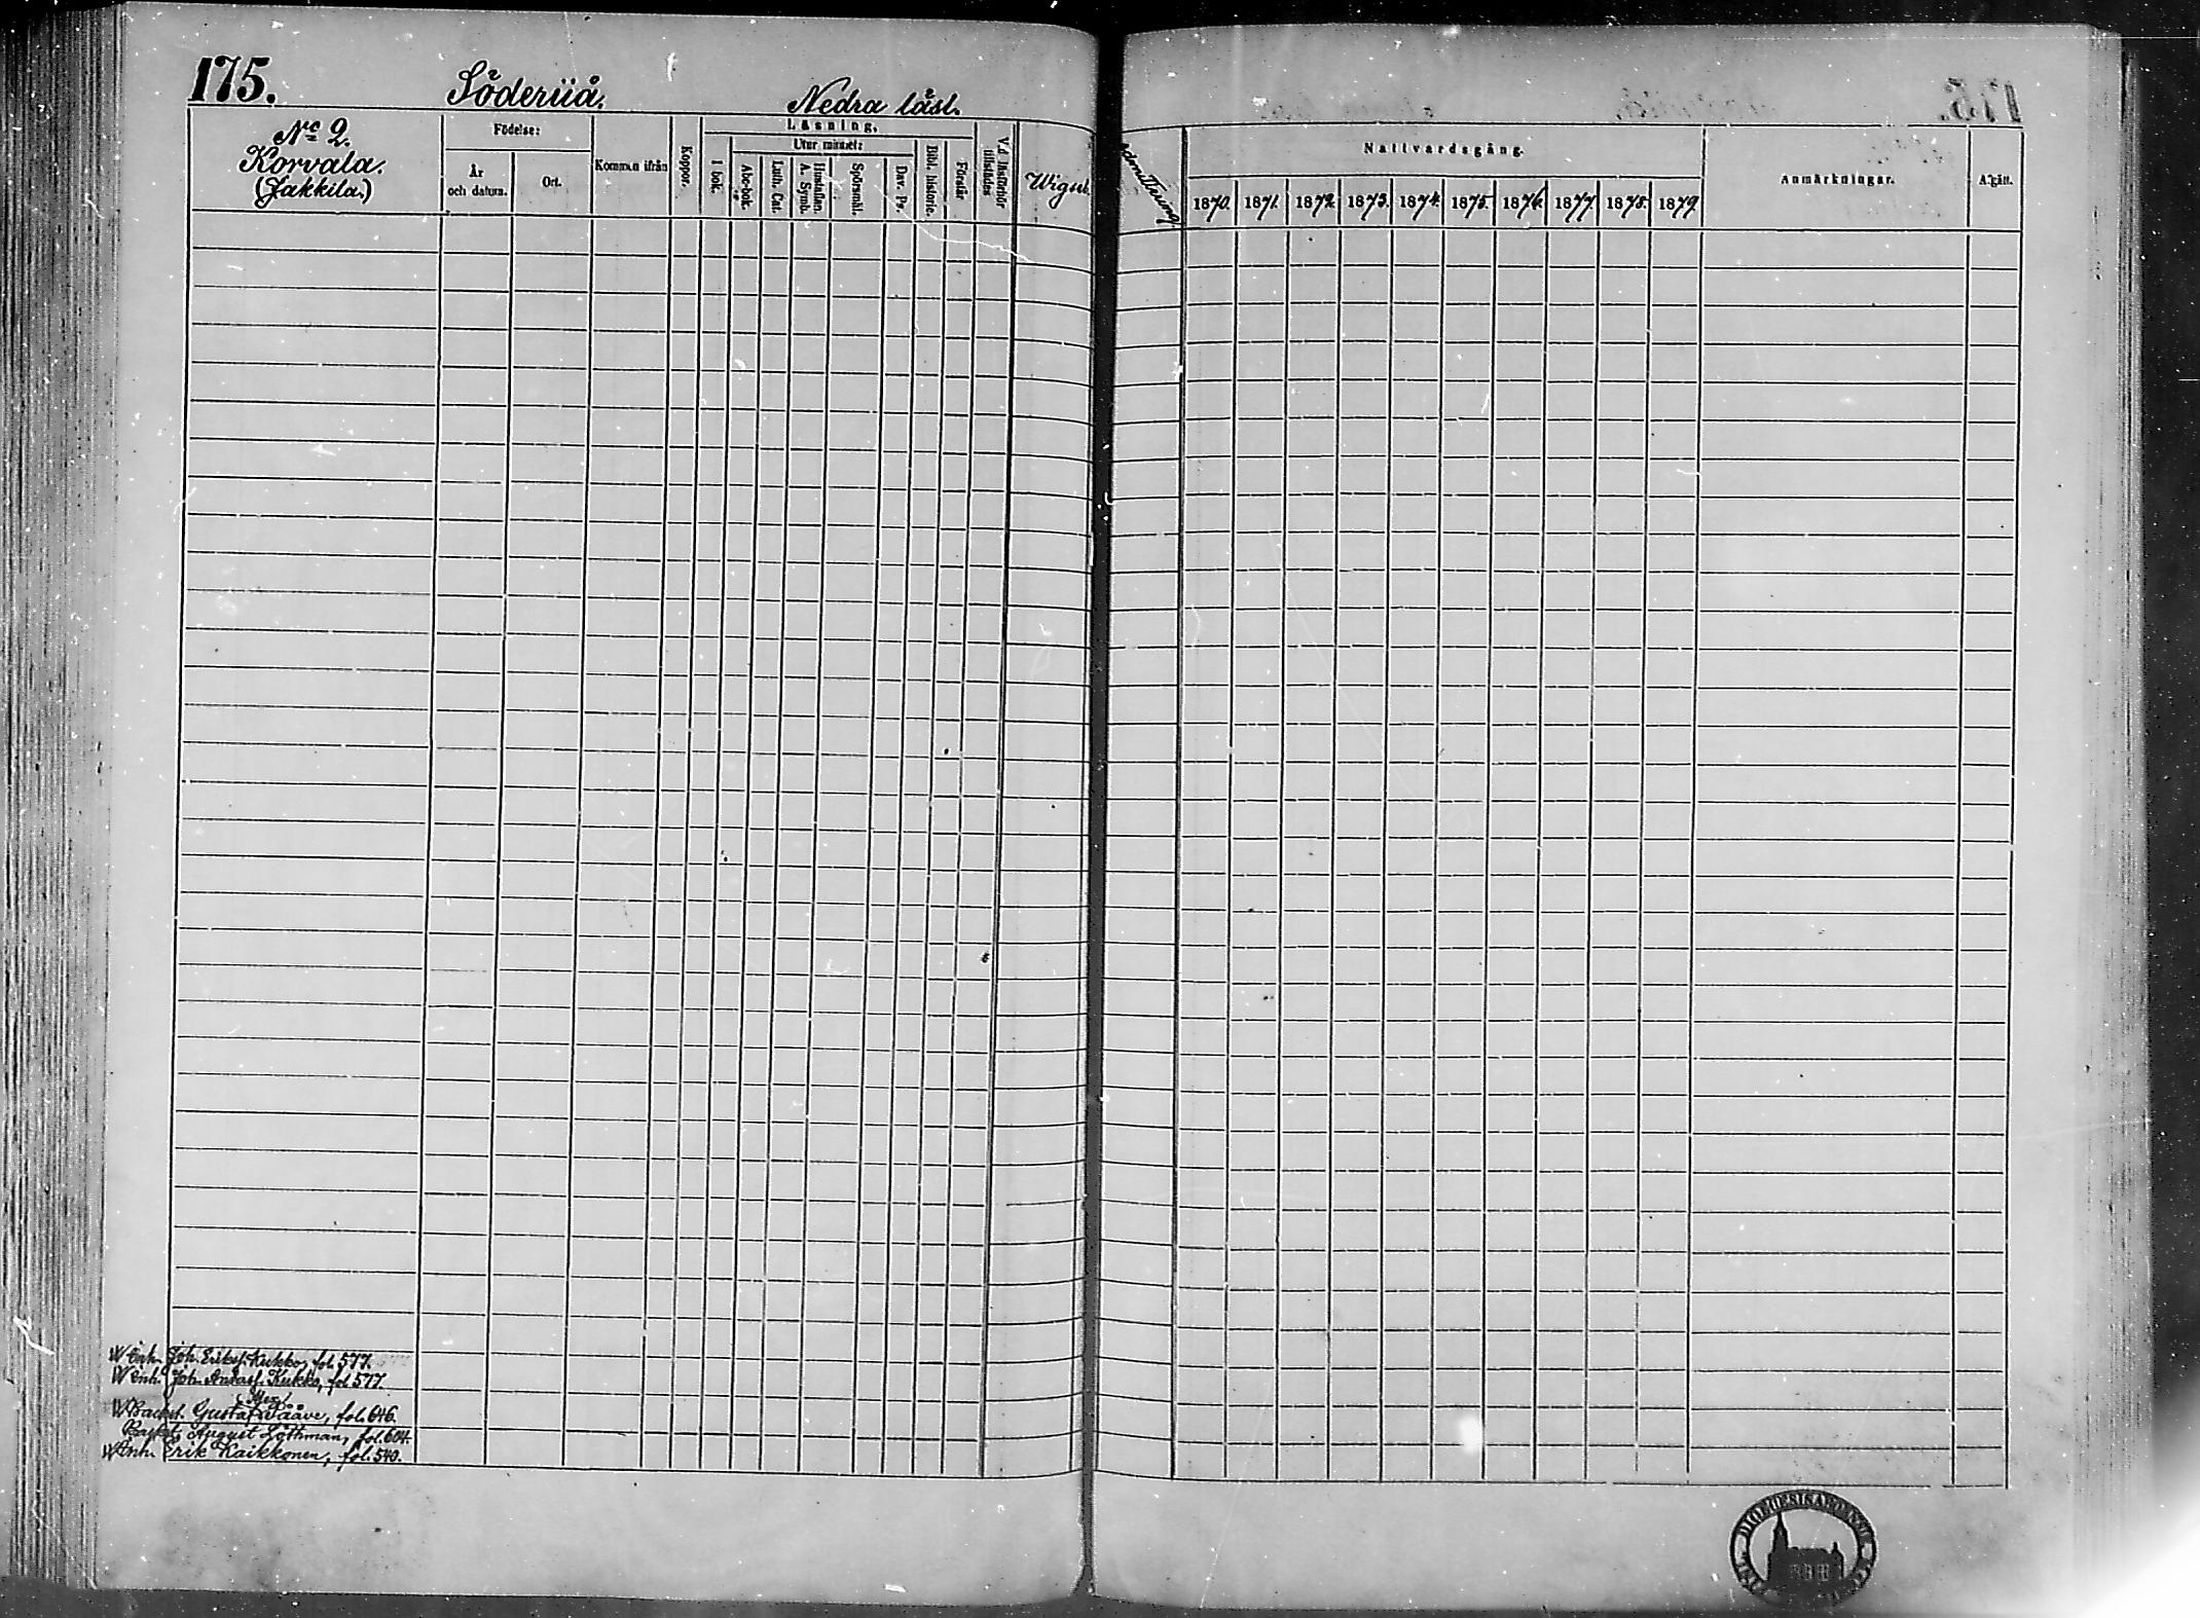 175. Söderiiå. Nedra läsl.
No 2.
Korvala.
(Jakkila.)
Födelse:
År
och datum.
Ort.
Kommen ifrån
Koppor.
Läsning.
I bok.
Utur minnet:
Abc-bok.
Luth. Cat.
Hustaflan.
A. Symb.
Spörsmål.
Dav. Ps.
Bibl. historie.
Förstår
V.d läsförhör
tillstädes
Wigsel.
Admitterad
Nattvardsgång.
1870. 1871. 1872. 1873. 1874. 1875. 1876. 1877. 1878. 1879.
Anmärkningar.
Afgått.
W Enh. Joh. Eriksf. Kukko, fol. 577.
W Enh. Joh. Andersf. Kukko, fol 577.
W Backst. Gustaf Wääve, fol. 646.
Backst. August Löthman, fol. 604.
W Enh. Erik Kaikkonen, fol. 540.